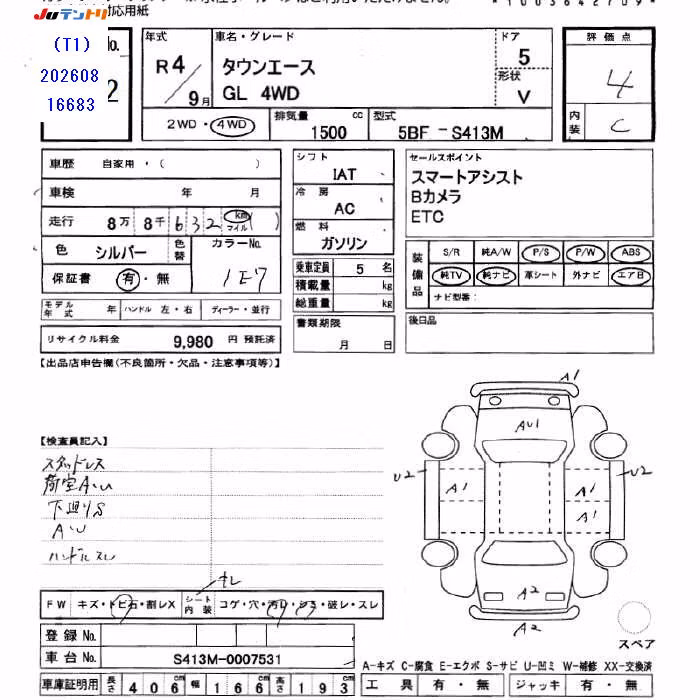 Juテントリ
対応用紙
*1003642709*
(T1)
202608
16683
No.
2
年式 車名・グレード ドア 評価点
R4/9月 タウンエース 5 4
GL 4WD 形状 V 内装 C
2WD・4WD 排気量 1500 cc 型式 5BF - S413M
車歴 自家用・( )
車検 年 月
走行 8万 8千 6 3 2 km マイル ( )
色 シルバー 色替 カラーNo.
保証書 有・無 1E7
モデル年式 年 ハンドル 左・右 ディーラー・並行
リサイクル料金 9,980 円 預託済
シフト IAT
冷房 AC
燃料 ガソリン
乗車定員 5 名
積載量 kg
総重量 kg
書類期限
月 日
セールスポイント
スマートアシスト
Bカメラ
ETC
装備品
S/R 純A/W P/S P/W ABS
純TV 純ナビ 革シート 外ナビ エアB
ナビ型番:
後日品
【出品店申告欄(不良箇所・欠品・注意事項等)】
【検査員記入】
スタッドレス
荷室A・U
下廻りS
A・U
ハンドルスレ
キレ
FW キズ・トビ石・割レX シート内装 コゲ・穴・汚レ・シミ・破レ・スレ
登録No.
車台No. S413M-0007531
車庫証明用 長さ 406 cm 幅 166 cm 高さ 193 cm
A1
AU1
U2 A1 A1 U2
A1
A2
A2
スペア
A-キズ C-腐食 E-エクボ S-サビ U-凹ミ W-補修 XX-交換済
工具 有・無 ジャッキ 有・無